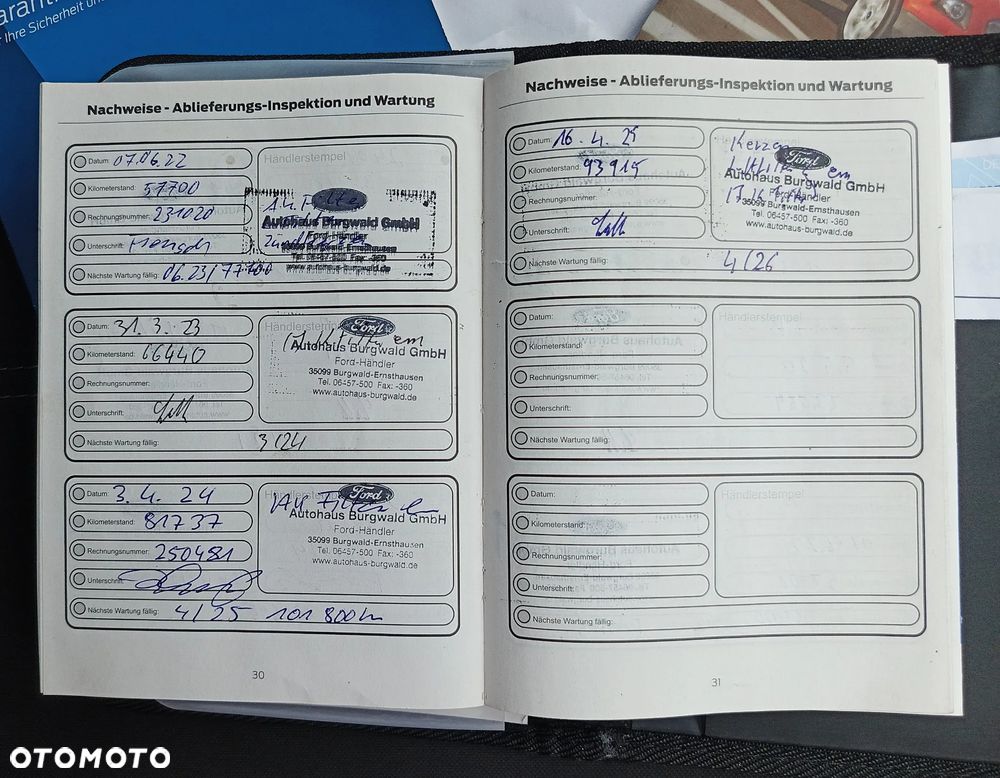 arantie
Ihre Sicherheit und
Nachweise - Ablieferungs-Inspektion und Wartung
Datum: 07.06.22
Kilometerstand: 57700
Rechnungsnummer: 231020
Unterschrift:
Nächste Wartung fällig: 06.23/77700
Händlerstempel
Ford
Autohaus Burgwald GmbH
Ford-Händler
35099 Burgwald-Ernsthausen
Tel. 06457-500 Fax: -360
www.autohaus-burgwald.de
Datum: 31.3.23
Kilometerstand: 66440
Rechnungsnummer:
Unterschrift:
Nächste Wartung fällig: 3/24
Händlerstempel
Ford
Autohaus Burgwald GmbH
Ford-Händler
35099 Burgwald-Ernsthausen
Tel. 06457-500 Fax: -360
www.autohaus-burgwald.de
Datum: 3.4.24
Kilometerstand: 81737
Rechnungsnummer: 250481
Unterschrift:
Nächste Wartung fällig: 4/25 101 800 km
Händlerstempel
Ford
Autohaus Burgwald GmbH
Ford-Händler
35099 Burgwald-Ernsthausen
Tel. 06457-500 Fax: -360
www.autohaus-burgwald.de
30
Nachweise - Ablieferungs-Inspektion und Wartung
Datum: 16.4.25
Kilometerstand: 93915
Rechnungsnummer:
Unterschrift:
Nächste Wartung fällig: 4/26
Kerzen
Ford
Autohaus Burgwald GmbH
Ford-Händler
35099 Burgwald-Ernsthausen
Tel. 06457-500 Fax: -360
www.autohaus-burgwald.de
Datum:
Kilometerstand:
Rechnungsnummer:
Unterschrift:
Nächste Wartung fällig:
Händlerstempel
Datum:
Kilometerstand:
Rechnungsnummer:
Unterschrift:
Nächste Wartung fällig:
Händlerstempel
31
OTOMOTO